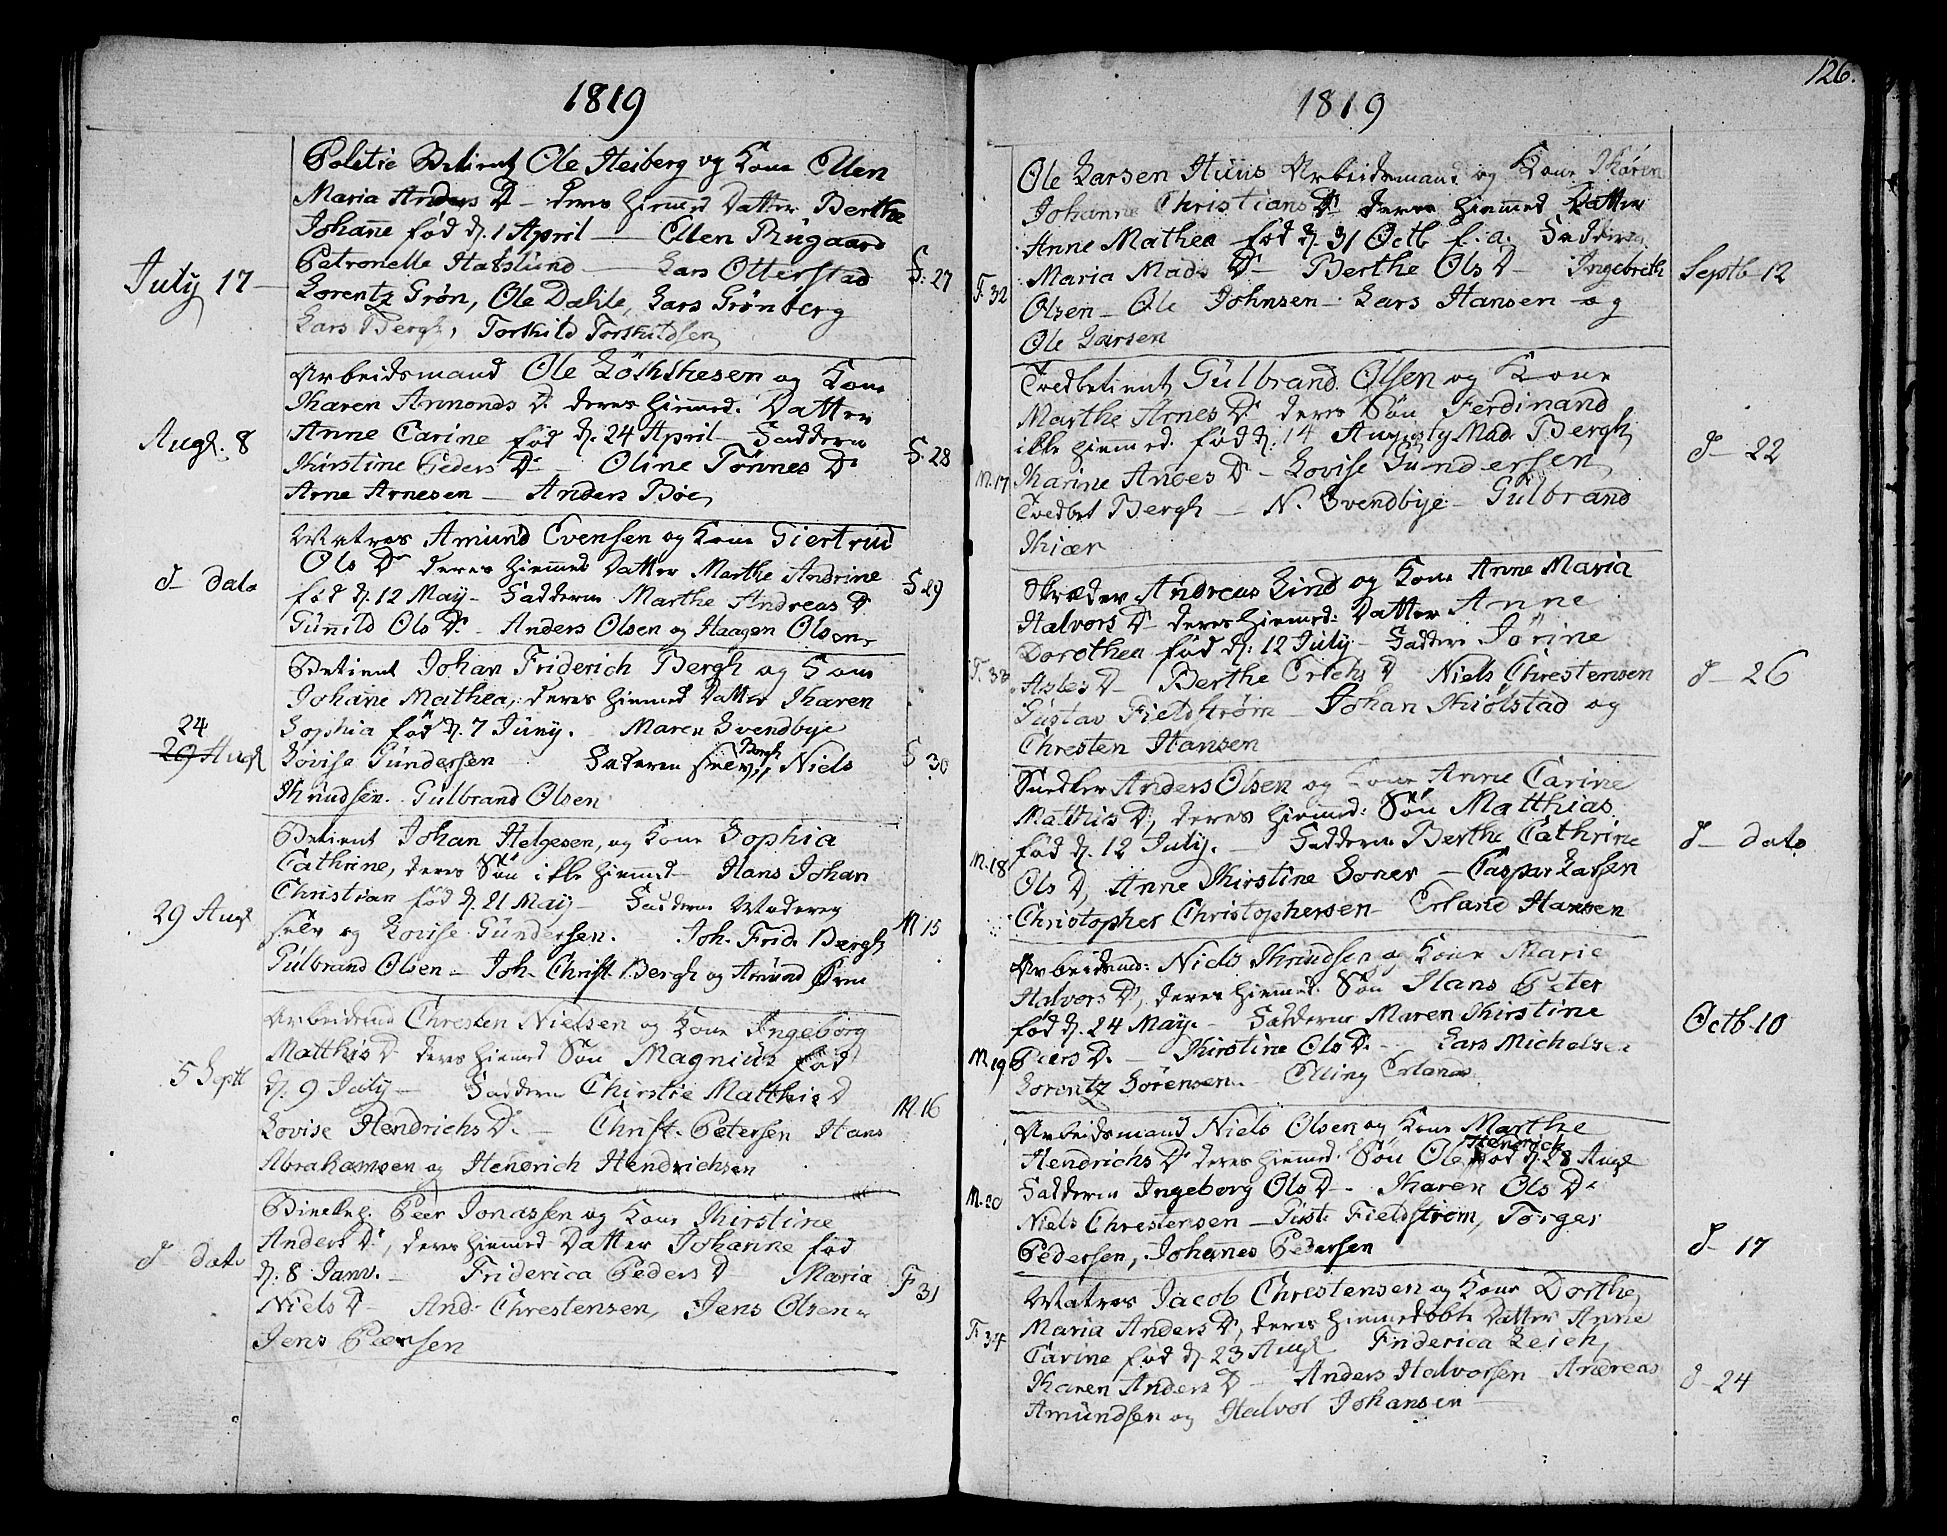 1819
Politie Betient Ole Heiberg og Kone Ellen
Maria Anders D. deres hiemed Datter Berthe
Johanne fød d. 1 April — Ellen Rugaard
Petronelle Hafslund — Lars Otterstad
July 17 — F. 27
Lorentz Grøn, Ole Dahle, Lars Grønberg
Lars Bergh, Torkild Torkildsen
Arbeidsmand Ole og Kone
Karen Amonds D. deres hiemed. Datter
Anne Carine fød d. 24 April — Fadderne
Augt. 8 F. 28
Kirstine Peders D. — Oline Tønnes D.
Arne Arnesen — Anders Boe
Matros Amund Evensen og Kone Giertrud
Ols D. deres hiemed Datter Marthe Andrine
d — dato F 29
fød d. 12 May — Fadderne Marthe Andreas D.
Gunild Ols D. — Anders Olsen og Haagen Olsen
Betient Johan Friderich Bergh og Kone
Johanne Mathea, deres hiemed Datter Karen
24
Sophia fød d. 7 Juny. — Maren Svendbye
29 Augt F 30
Lovise Gundersen Faderen selv Bergh, Niels
Knudsen. Gulbrand Olsen
Betient Johan Helgesen, og Kone Sophia
Cathrine, deres Søn ikke hiemed — Hans Johan
Christian fød d. 21 May — Fadderne Moderen
29 Augt M 15
selv og Lovise Gundersen. Joh. Frid. Bergh
Gulbrand Olsen — Joh. Christ. Bergh og Amund Ørn
Arbeidsmd Chresten Nielsen og Kone Ingeborg
Matthis D. deres hiemed Søn Magnius fød
5 Septb M. 16
d. 9 July — Fadderne Chirstie Matthis D
Lovise Hendrichs D. — Christ. Petersen Hans
Abrahamsen og Hendrich Hendrichsen
Peer Jonassen og Kone Kirstine
Anders D., deres hiemed Datter Johanne fød
d — dato F 31
d. 8 Janv. — Friderica Peders D Maria
Niels D — And. Chrestensen, Jens Olsen
Jens Peersen
126.
1819
Ole Larsen Huus Arbeidsmand og Kone Karen
Johanne Christians D. deres hiemed Datter
Anne Mathea fød d. 31 Octb f. a. Fadderne
F. 32 Septb 12
Maria Mads D — Berthe Ols D — Ingebreth
Olsen — Ole Johnsen — Lars Hansen og
Ole Larsen
Tvedbetient Gulbrand Olsen og Kone
Marthe Arnes D. deres Søn Ferdinand
ikke hiemed. fød d. 14 Augusty Mad. Bergh
M. 17 d — 22
Karine D. — Lovise Gundersen
Tvedbet Bergh — N. Svendbye — Gulbrand
Kiær
Skræder Andreas Lind og Kone Anne Maria
Halvors D deres hiemed: Datter Anne
Dorothea fød d. 12 July — Faddere Jörine
F. 33 d — 26
D — Berthe Erichs D Niels Chrestensen
Gustav Fieldstrøm — Johan Kiølstad og
Chresten Hansen
Snedker Anders Olsen og Kone Anne Carine
Mathis D, deres hiemed: Søn Matthias
fød d. 12 July. — Fadderne Berthe Cathrine
M. 18 d — dato
Ols D, Anne Kirstine — Caspar Larsen
Christopher Christophersen — Erland Hansen
Arbeidsmd: Niels Knudsen og Kone Marie
Halvors D, deres hiemed Søn Hans Peter
fød d. 24 May. — Fadderne Maren Kirstine
M. 19 Octb 10
Peers D. — Kirstine Ols D. — Lars Michelsen
Lorentz Sörensen — Elling Erlands.
Arbeidsmand Niels Olsen og Kone Marthe
Hendrichs D deres hiemed. Søn Ole Hendrich fød d. 28 Augt
M. 20
Fadderne Ingeborg Ols D — Karen Ols D
Niels Chrestensen — Gust. Fieldstrøm, Torger
Pedersen, Johannes Pedersen d — 17
Matros Jacob Chrestensen og Kone Dorthe
Maria Anders D, deres hiemedøbte Datter Anne
F. 34
Carine fød d. 23 Augt Friderica Leich,
Karen Anders D — Anders Halvorsen Andreas d — 24
Amundsen og Halvor Johansen